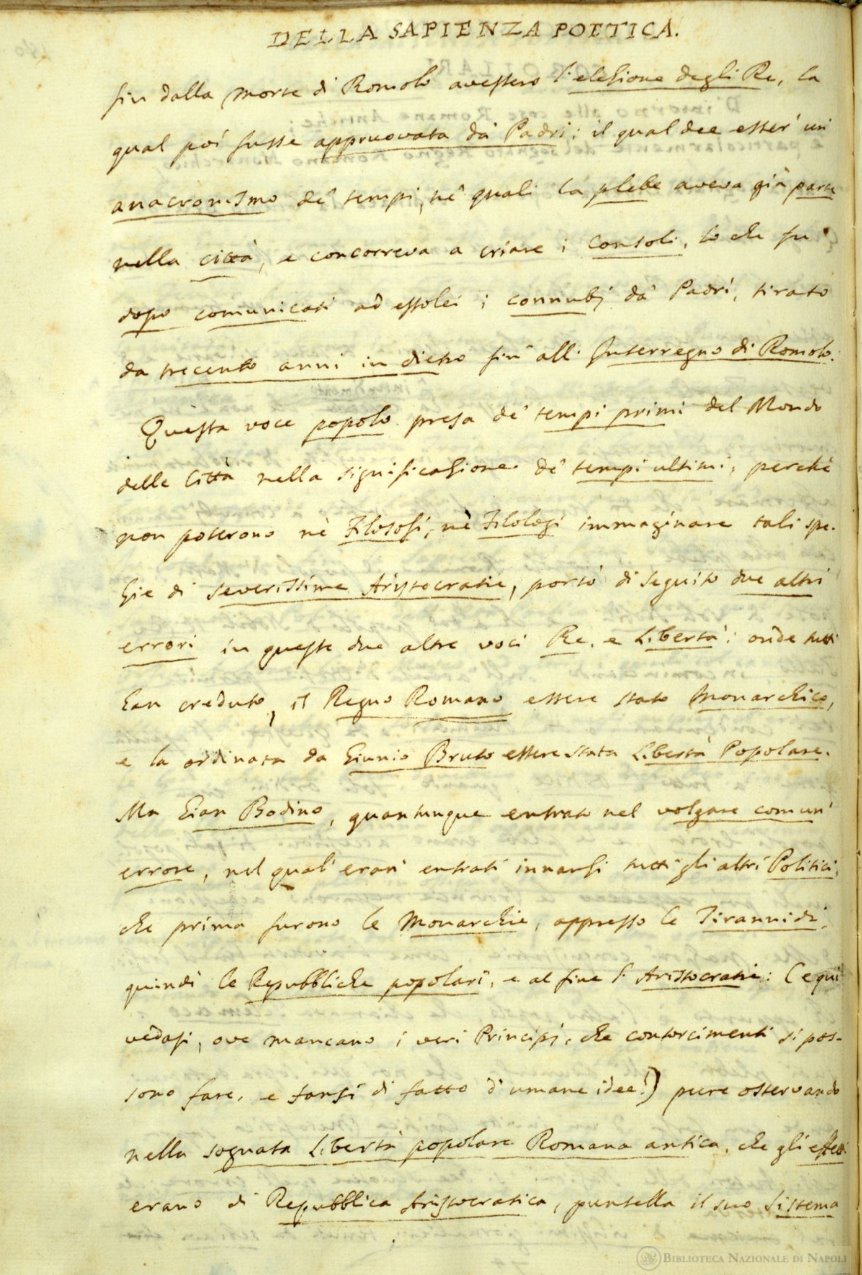 DELLA SAPIENZA POETICA.
fin dalla morte di Romolo avessero l'elezione degli Re, la
qual poi fusse appruovata da' Padri: il qual dee esser' un'
anacronismo de' tempi, ne' quali la plebe aveva già parte
nella città, e concorreva a criare i Consoli, lo che fu
dopo comunicati ad essolei i connubj da' Padri, tirato
da trecento anni in dietro fin' all' Interregno di Romolo.
Questa voce popolo presa de' tempi primi del Mondo
delle Città nella significazione de' tempi ultimi, perchè
non poterono nè Filosofi, nè Filologi immaginare tali spe-
zie di severissime Aristocratie, portò di seguito due altri
errori in queste due altre voci Re, e Libertà: onde tutti
han creduto, il Regno Romano essere stato Monarchico,
e la ordinata da Giunio Bruto essere stata Libertà Popolare.
Ma Gian Bodino, quantunque entrato nel volgare comun'
errore, nel qual' eran' entrati innanzi tutti gli altri Politici,
che prima furono le Monarchie, appresso le Tirannidi,
quindi le Repubbliche popolari, e al fine l'Aristocratie: (e qui
vedasi, ove mancano i veri Principj, che contorcimenti si pos-
sono fare, e fansi di fatto d'umane idee!) pure osservando
nella sognata Libertà popolare Romana antica, che gli effetti
erano di Repubblica Aristocratica, puntella il suo Sistema
BIBLIOTECA NAZIONALE DI NAPOLI